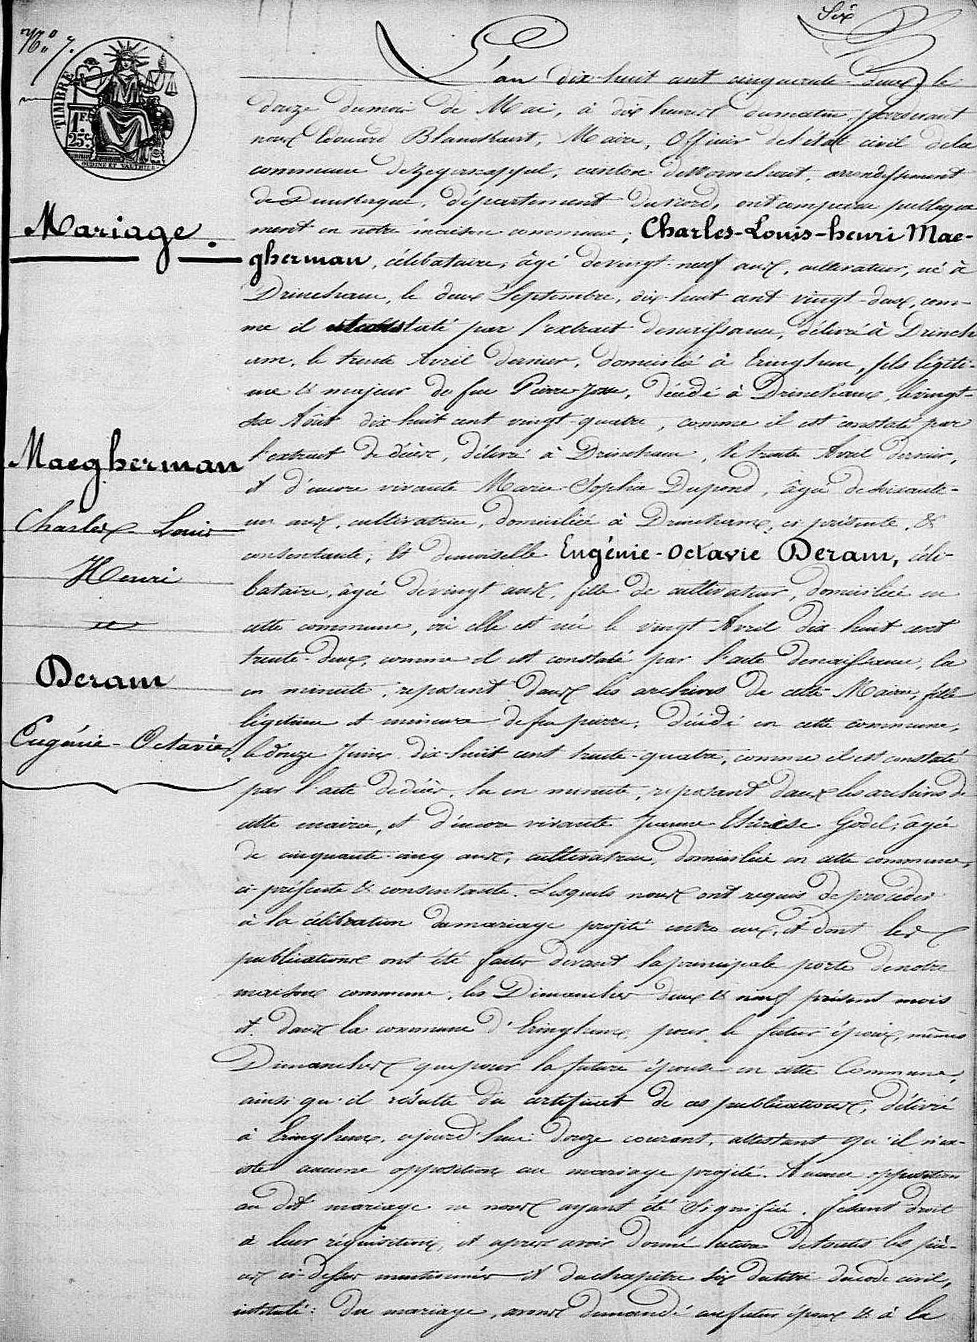 N.º 7.
Six
TIMBRE
1F
25c
Mariage.
Maegherman
Charles Louis
Henri
et
Deram
Eugénie-Octavie
L'an dix-huit cent cinquante-deux, le
douze du mois de Mai, à dix heures du matin, pardevant
nous Edouard Blanckaert, Maire, Officier de l'état civil de la
commune de Zegerscappel, canton de Wormhout, arrondissement
de Dunkerque, département du Nord, ont comparu publique
ment en notre maison commune, Charles-Louis-henri Mae-
gherman, célibataire, âgé de vingt-neuf ans, cultivateur, né à
Drincham, le deux Septembre, dix-huit cent vingt-deux, com-
me il est constaté par l'extrait de naissance, délivré à Drinch
am, le trente Avril dernier, domicilié à Eringhem, fils légiti-
me & majeur de feu Pierre Jean, décédé à Drincham, le vingt-
Août dix huit cent vingt quatre, comme il est constaté par
l'extrait de décès, délivré à Drincham, le trente Avril dernier,
et d'encore vivante Marie Sophie Dupond, âgée de soixante-
un ans, cultivatrice, domiciliée à Drincham, ci présente, &
consentante; Et demoiselle Eugénie-Octavie Deram, céli-
bataire, âgée de vingt ans, fille de cultivateur, domiciliée en
cette commune, où elle est née le vingt Avril dix huit cent
trente-deux, comme il est constaté par l'acte de naissance, la
en minute, reposant dans les archives de cette Mairie, fille
légitime et mineure de feu pierre, décédé en cette commune,
le douze Juin dix-huit cent trente-quatre, comme il est constaté
par l'acte de décès, lu en minute, reposant dans les archives de
cette mairie, et d'encore vivante Jeanne Thérèse Godel, âgée
de cinquante-cinq ans, cultivatrice, domiciliée en cette commune,
ci présente & consentante. Lesquels nous ont requis de procéder
à la célébration du mariage projeté entre eux, et dont les
publications ont été faites devant la principale porte de notre
maison commune, les Dimanches deux & neuf présent mois
et dans la commune d'Eringhem, pour le futur époux, mêmes
Dimanches que pour la future épouse en cette Commune,
ainsi qu'il résulte du certificat de ces publications, délivré
à Eringhem, cejourd'hui douze courant, attestant qu'il n'ex-
iste aucune opposition au mariage projeté. Aucune opposition
au dit mariage ne nous ayant été signifiée, fesant droit
à leur réquisition, et après avoir donné lecture de toutes les piè-
ces ci-dessus mentionnées et du chapitre six du titre du code civil,
intitulé: du mariage, avons demandé au futur époux & à la